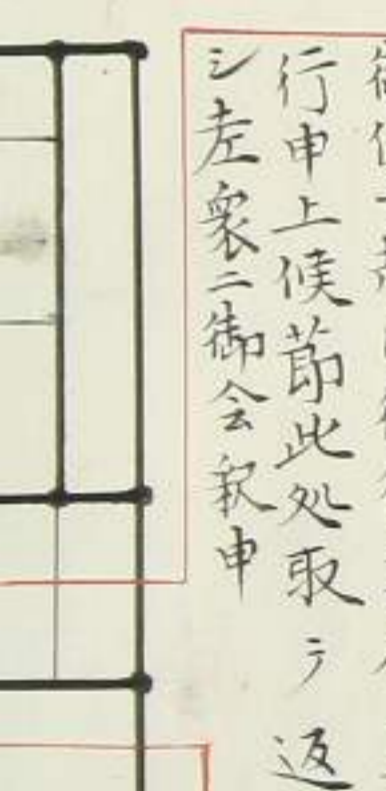 行申上候節此処取ラ返
シ左衆ニ御会釈申